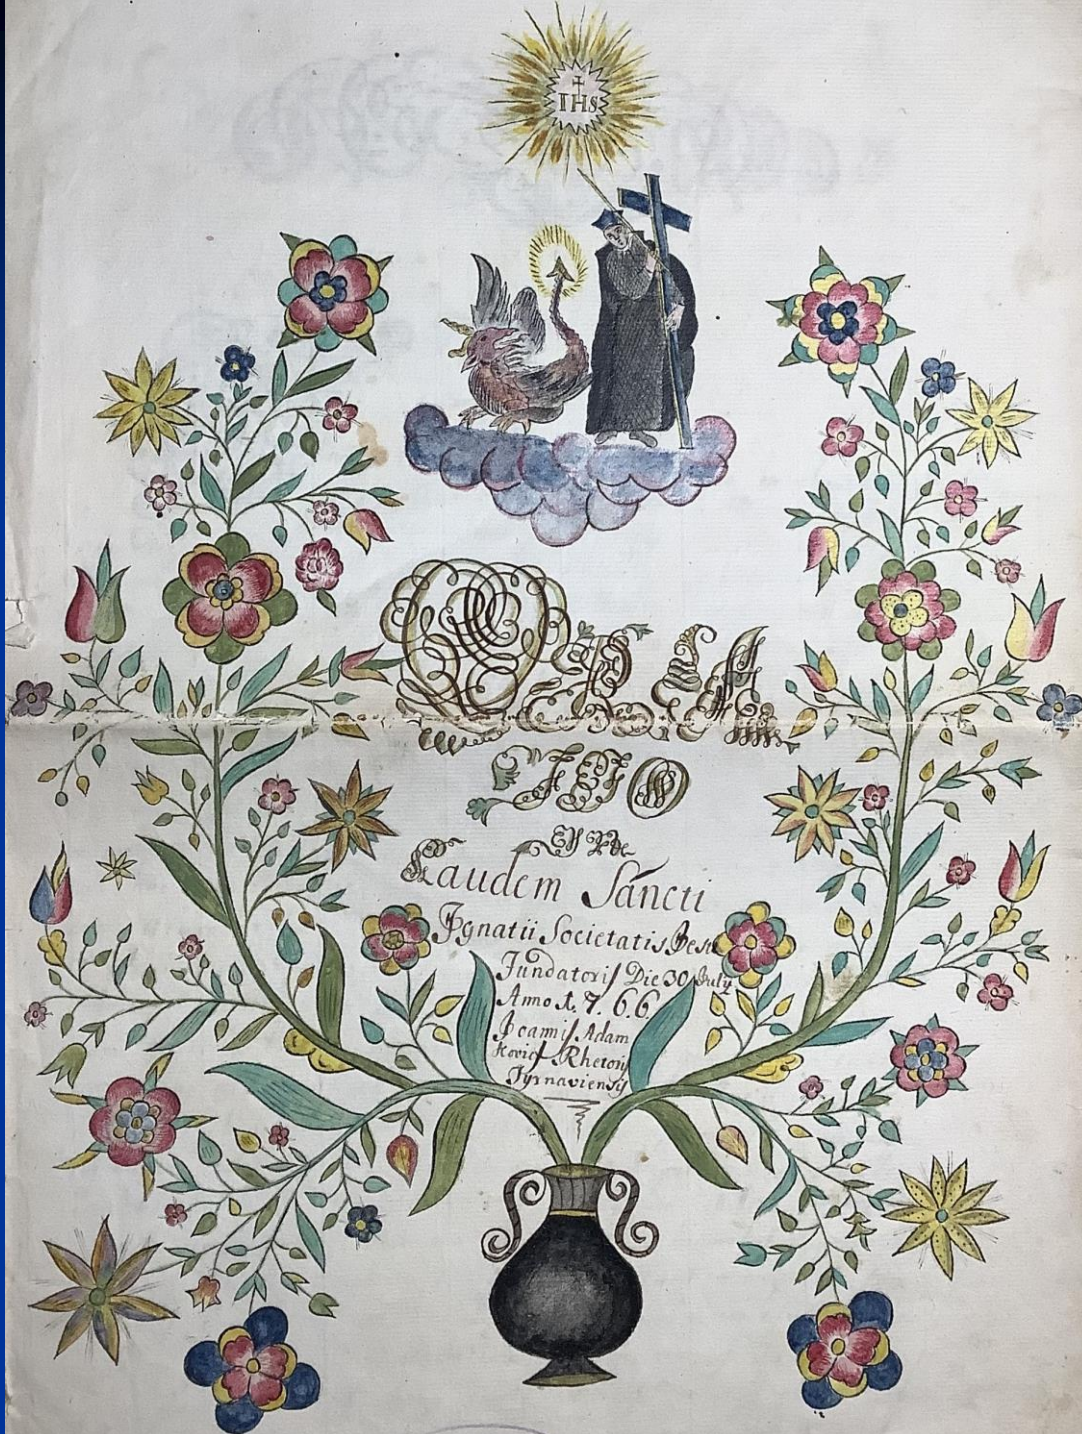 IHS
Laudem Sancti
Ignatii Societatis Jesu
Fundatoris Die 30 July
Anno 1.7.6.6.
Joannis Adam
kovics Rhetoris
Tyrnaviensis